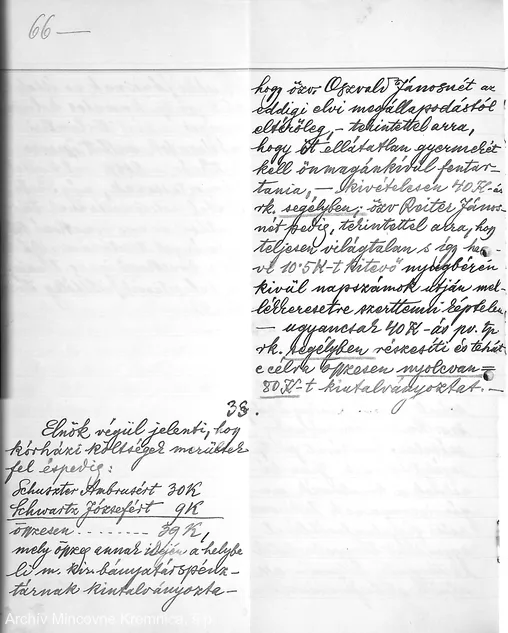 66 —
hogy özv. Oszvald Jánosnét az
eddigi elvi megállapodástól
eltérőleg, – tekintettel arra,
hogy öt ellátatlan gyermekét
kell önmagán kívül fentar-
tania, – kivételesen 40 K-ás
rk. segélyben, özv Reiter János-
nét pedig, tekintettel arra, hog
teljesen világtalan s így
10·5 K-t kitevő nyugbérén
kívül napszámok utján mel-
lékkeresetre szerttenni képtelen,
– ugyancsak 40 K-ás
rk. segélyben részesíti és tehát
e célra összesen nyolcvan =
80 K-t kintalványoztat. –
38.
Elnök végül jelenti, hog
kórházi költségek merültek
fel éspedig:
Schuszter Ambrusért 30 K
Schwartz Józsefért 9 K
összesen ........ 39 K,
mely összeg annak idején a helybe
li m. kir. bányatárspénz-
tárnak kintalványozta-
Archív Mincovne Kremnica, š.p.